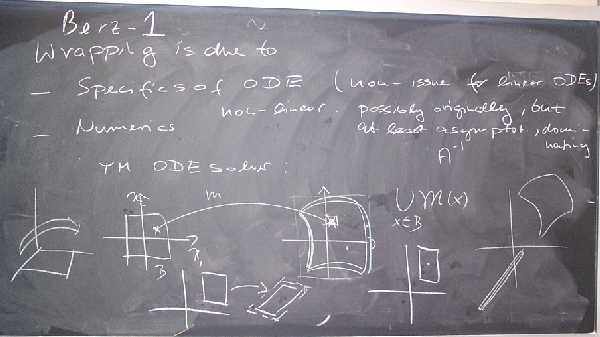 Berz-1
Wrapping is due to
- Specifics of ODE (non-issue for linear ODEs)
non-linear. possibly originally, but
- Numerics at least asymptot. domi-
nating
A⁻¹
TM ODE solver:
m
B
∪ M(x)
x∈B